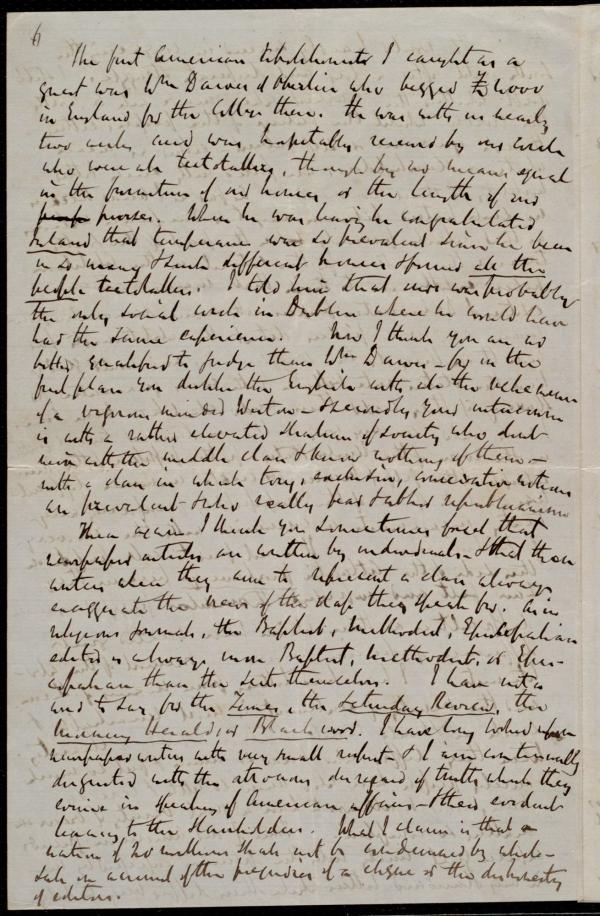 6
The first American Abolitionist I caught as a
guest was Wm Dawes of Oberlin who begged £4000
in England for the College there. He was with us nearly
two weeks and was hospitably received by our circle
who were all teetotallers, though by no means equal
in the furniture of our houses or the length of our
purses. When he was leaving he congratulated
Ireland that temperance was so prevalent since he had been
in so many & such different houses & found all the
people teetotallers. I told him that ours was probably
the only social circle in Dublin where he could have
had the same experience. Now I think you are no
better qualified to judge than Wm Dawes – for in the
first place you dislike the English with all the vehemence
of a vigorous minded Weston – & secondly your intercourse
is with a rather elevated stratum of society who dont
mix with the middle class & know nothing of them –
with a class in which tory, exclusive, conservative notions
are prevalent & who really fear & abhor republicanism
Then again I think you sometimes forget that
newspaper articles are written by individuals – & that these
writers when they aim to represent a class always
exaggerate the views of the class they speak for. As in
religious journals, the Baptist, Methodist, Episcopalian
editor is always more Baptist, Methodist, or Epis-
copalian than the sects themselves. I have not a
word to say for the Times, the Saturday Review, the
Morning Herald, or Blackwood. I have long looked upon
newspaper writers with very small respect – & I am continually
disgusted with the atrocious disregard of truth which they
evince in speaking of American affairs – & their evident
leaning to the slaveholders. What I claim is that a
nation of 20 millions shall not be condemned by whole-
sale on account of the prejudices of a clique or the dishonesty
of editors.